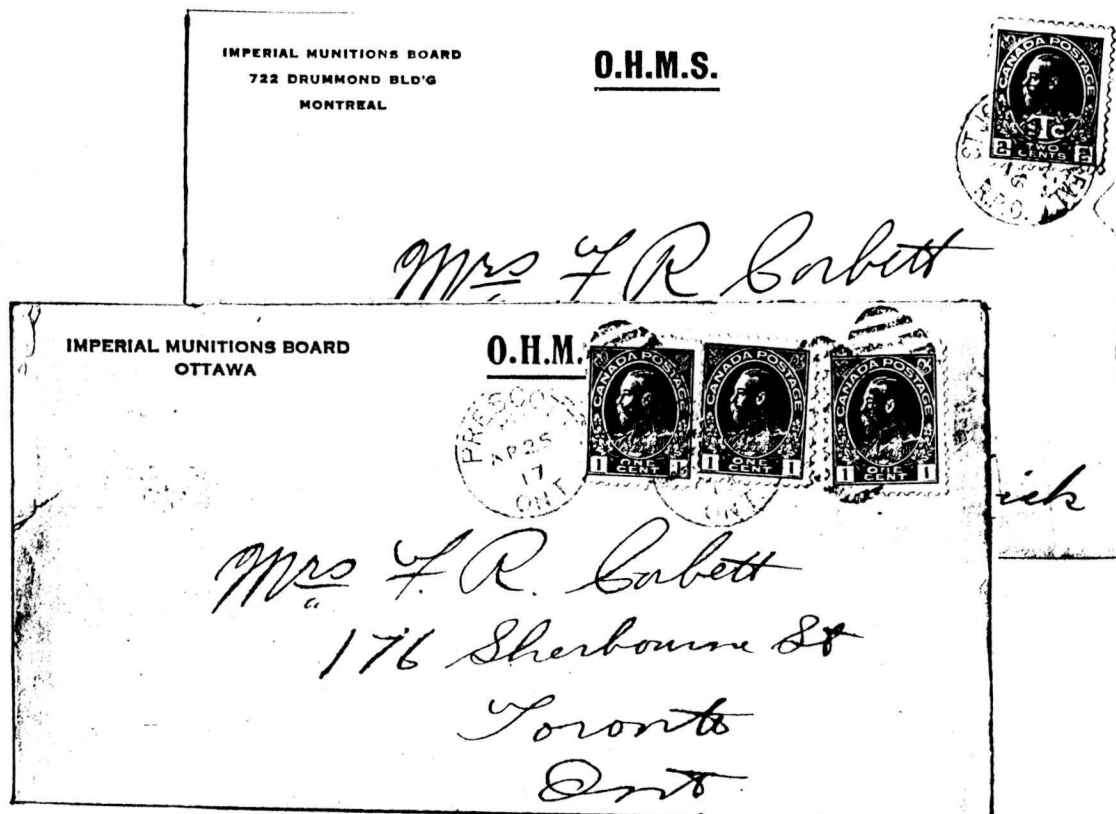 IMPERIAL MUNITIONS BOARD
722 DRUMMOND BLD'G
MONTREAL
O.H.M.S.
CANADA POSTAGE
1TC
2 TWO CENTS 2
16
R.P.O.
Mrs F R Corbett
IMPERIAL MUNITIONS BOARD
OTTAWA
O.H.M.
CANADA POSTAGE
1 ONE CENT 1
CANADA POSTAGE
1 ONE CENT 1
CANADA POSTAGE
1 ONE CENT 1
AP 25
17
ONT
ONT
ick
Mrs F. R. Corbett
176 Sherbourne St
Toronto
Ont